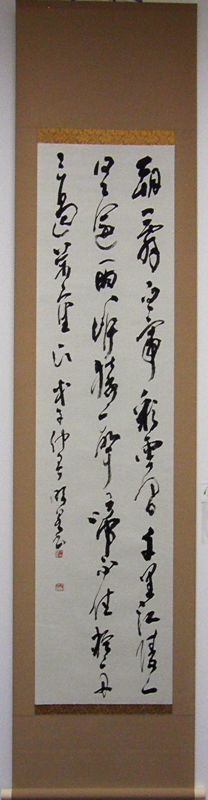 朝辭白帝彩雲間千里江陵一
日還兩岸猿聲啼不住輕舟
已過萬重山 戊子仲